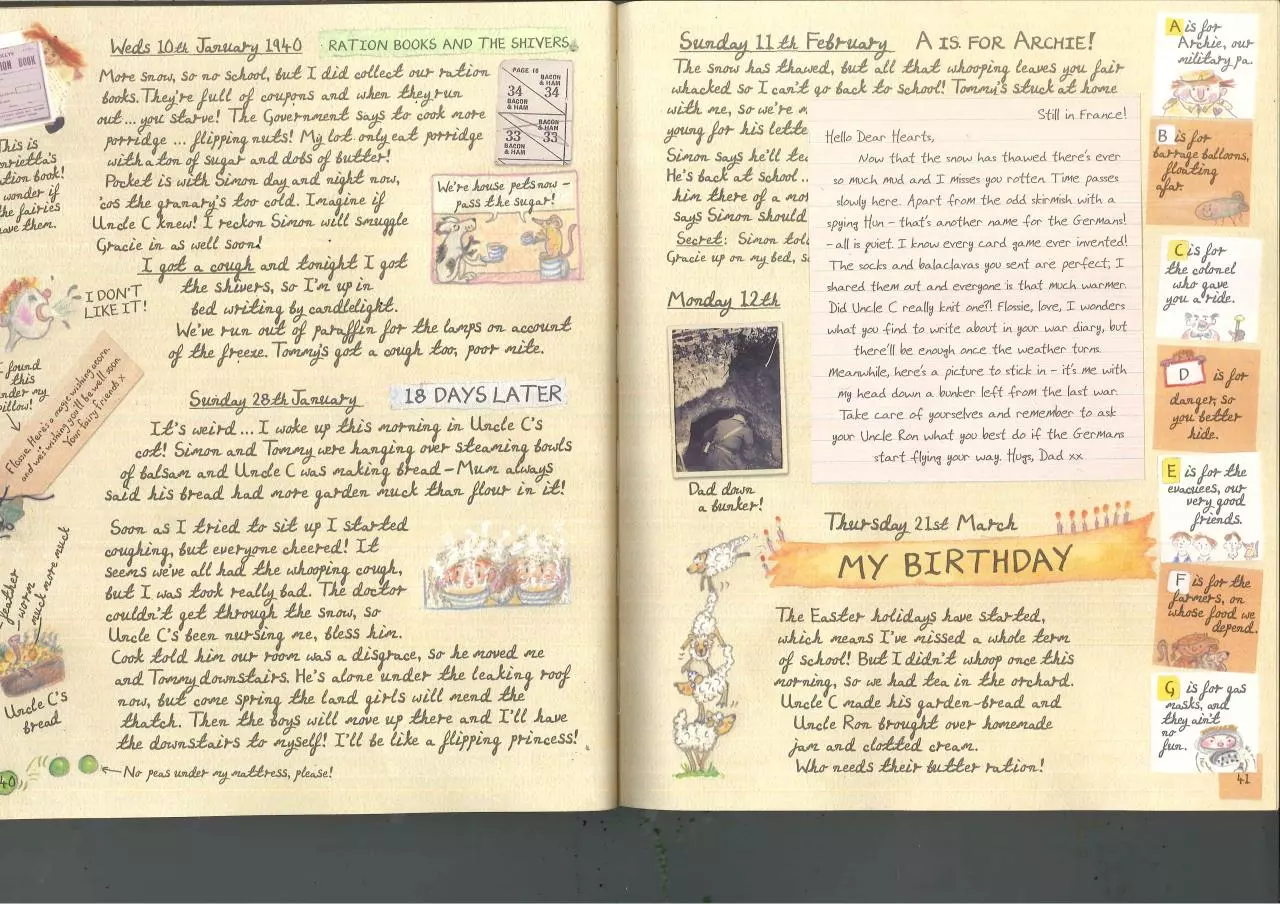 Weds 10th January 1940
RATION BOOKS AND THE SHIVERS
More snow, so no school, but I did collect our ration
books. They're full of coupons and when they run
out... you starve! The Government says to cook more
porridge ... flipping nuts! My lot only eat porridge
with a ton of sugar and dobs of butter!
Pocket is with Simon day and night now,
'cos the granary's too cold. Imagine if
Uncle C knew! I reckon Simon will smuggle
Gracie in as well soon!
I got a cough and tonight I got
the shivers, so I'm up in
bed writing by candlelight.
We've run out of paraffin for the lamps on account
of the freeze. Tommy's got a cough too, poor mite.
ION BOOK
This is
nrietta's
tion book!
wonder if
the fairies
have them.
PAGE 16
BACON & HAM
34
34
BACON & HAM
BACON & HAM
33
33
BACON & HAM
We're house pets now –
pass the sugar!
I DON'T
LIKE IT!
found
this
under my
pillow!
Flossie. Here's a magic wishing acorn,
and we're wishing you'll be well soon.
Your fairy friends x
Sunday 28th January
18 DAYS LATER
It's weird... I woke up this morning in Uncle C's
cot! Simon and Tommy were hanging over steaming bowls
of balsam and Uncle C was making bread – Mum always
said his bread had more garden muck than flour in it!
Soon as I tried to sit up I started
coughing, but everyone cheered! It
seems we've all had the whooping cough,
but I was took really bad. The doctor
couldn't get through the snow, so
Uncle C's been nursing me, bless him.
Cook told him our room was a disgrace, so he moved me
and Tommy downstairs. He's alone under the leaking roof
now, but come spring the land girls will mend the
thatch. Then the boys will move up there and I'll have
the downstairs to myself! I'll be like a flipping princess!
feather
worm
muck more muck
Uncle C's
bread
No peas under my mattress, please!
40
Sunday 11th February
A IS FOR ARCHIE!
The snow has thawed, but all that whooping leaves you fair
whacked so I can't go back to school! Tommy's stuck at home
with me, so we're m
young for his lette
Simon says he'll tea
He's back at school ..
him there of a mor
says Simon should
Secret: Simon told
Gracie up on my bed, s
Still in France!
Hello Dear Hearts,
Now that the snow has thawed there's ever
so much mud and I misses you rotten. Time passes
slowly here. Apart from the odd skirmish with a
spying Hun – that's another name for the Germans!
– all is quiet. I know every card game ever invented!
The socks and balaclavas you sent are perfect; I
shared them out and everyone is that much warmer.
Did Uncle C really knit one?! Flossie, love, I wonders
what you find to write about in your war diary, but
there'll be enough once the weather turns.
Meanwhile, here's a picture to stick in – it's me with
my head down a bunker left from the last war.
Take care of yourselves and remember to ask
your Uncle Ron what you best do if the Germans
start flying your way. Hugs, Dad xx
Monday 12th
Dad down
a bunker!
Thursday 21st March
MY BIRTHDAY
The Easter holidays have started,
which means I've missed a whole term
of school! But I didn't whoop once this
morning, so we had tea in the orchard.
Uncle C made his garden-bread and
Uncle Ron brought over homemade
jam and clotted cream.
Who needs their butter ration!
A is for
Archie, our
military pa.
B is for
barrage balloons,
floating
afar.
C is for
the colonel
who gave
you a ride.
D is for
danger, so
you better
hide.
E is for the
evacuees, our
very good
friends.
F is for the
farmers, on
whose food we
depend.
G is for gas
masks, and
they ain't
no
fun.
41